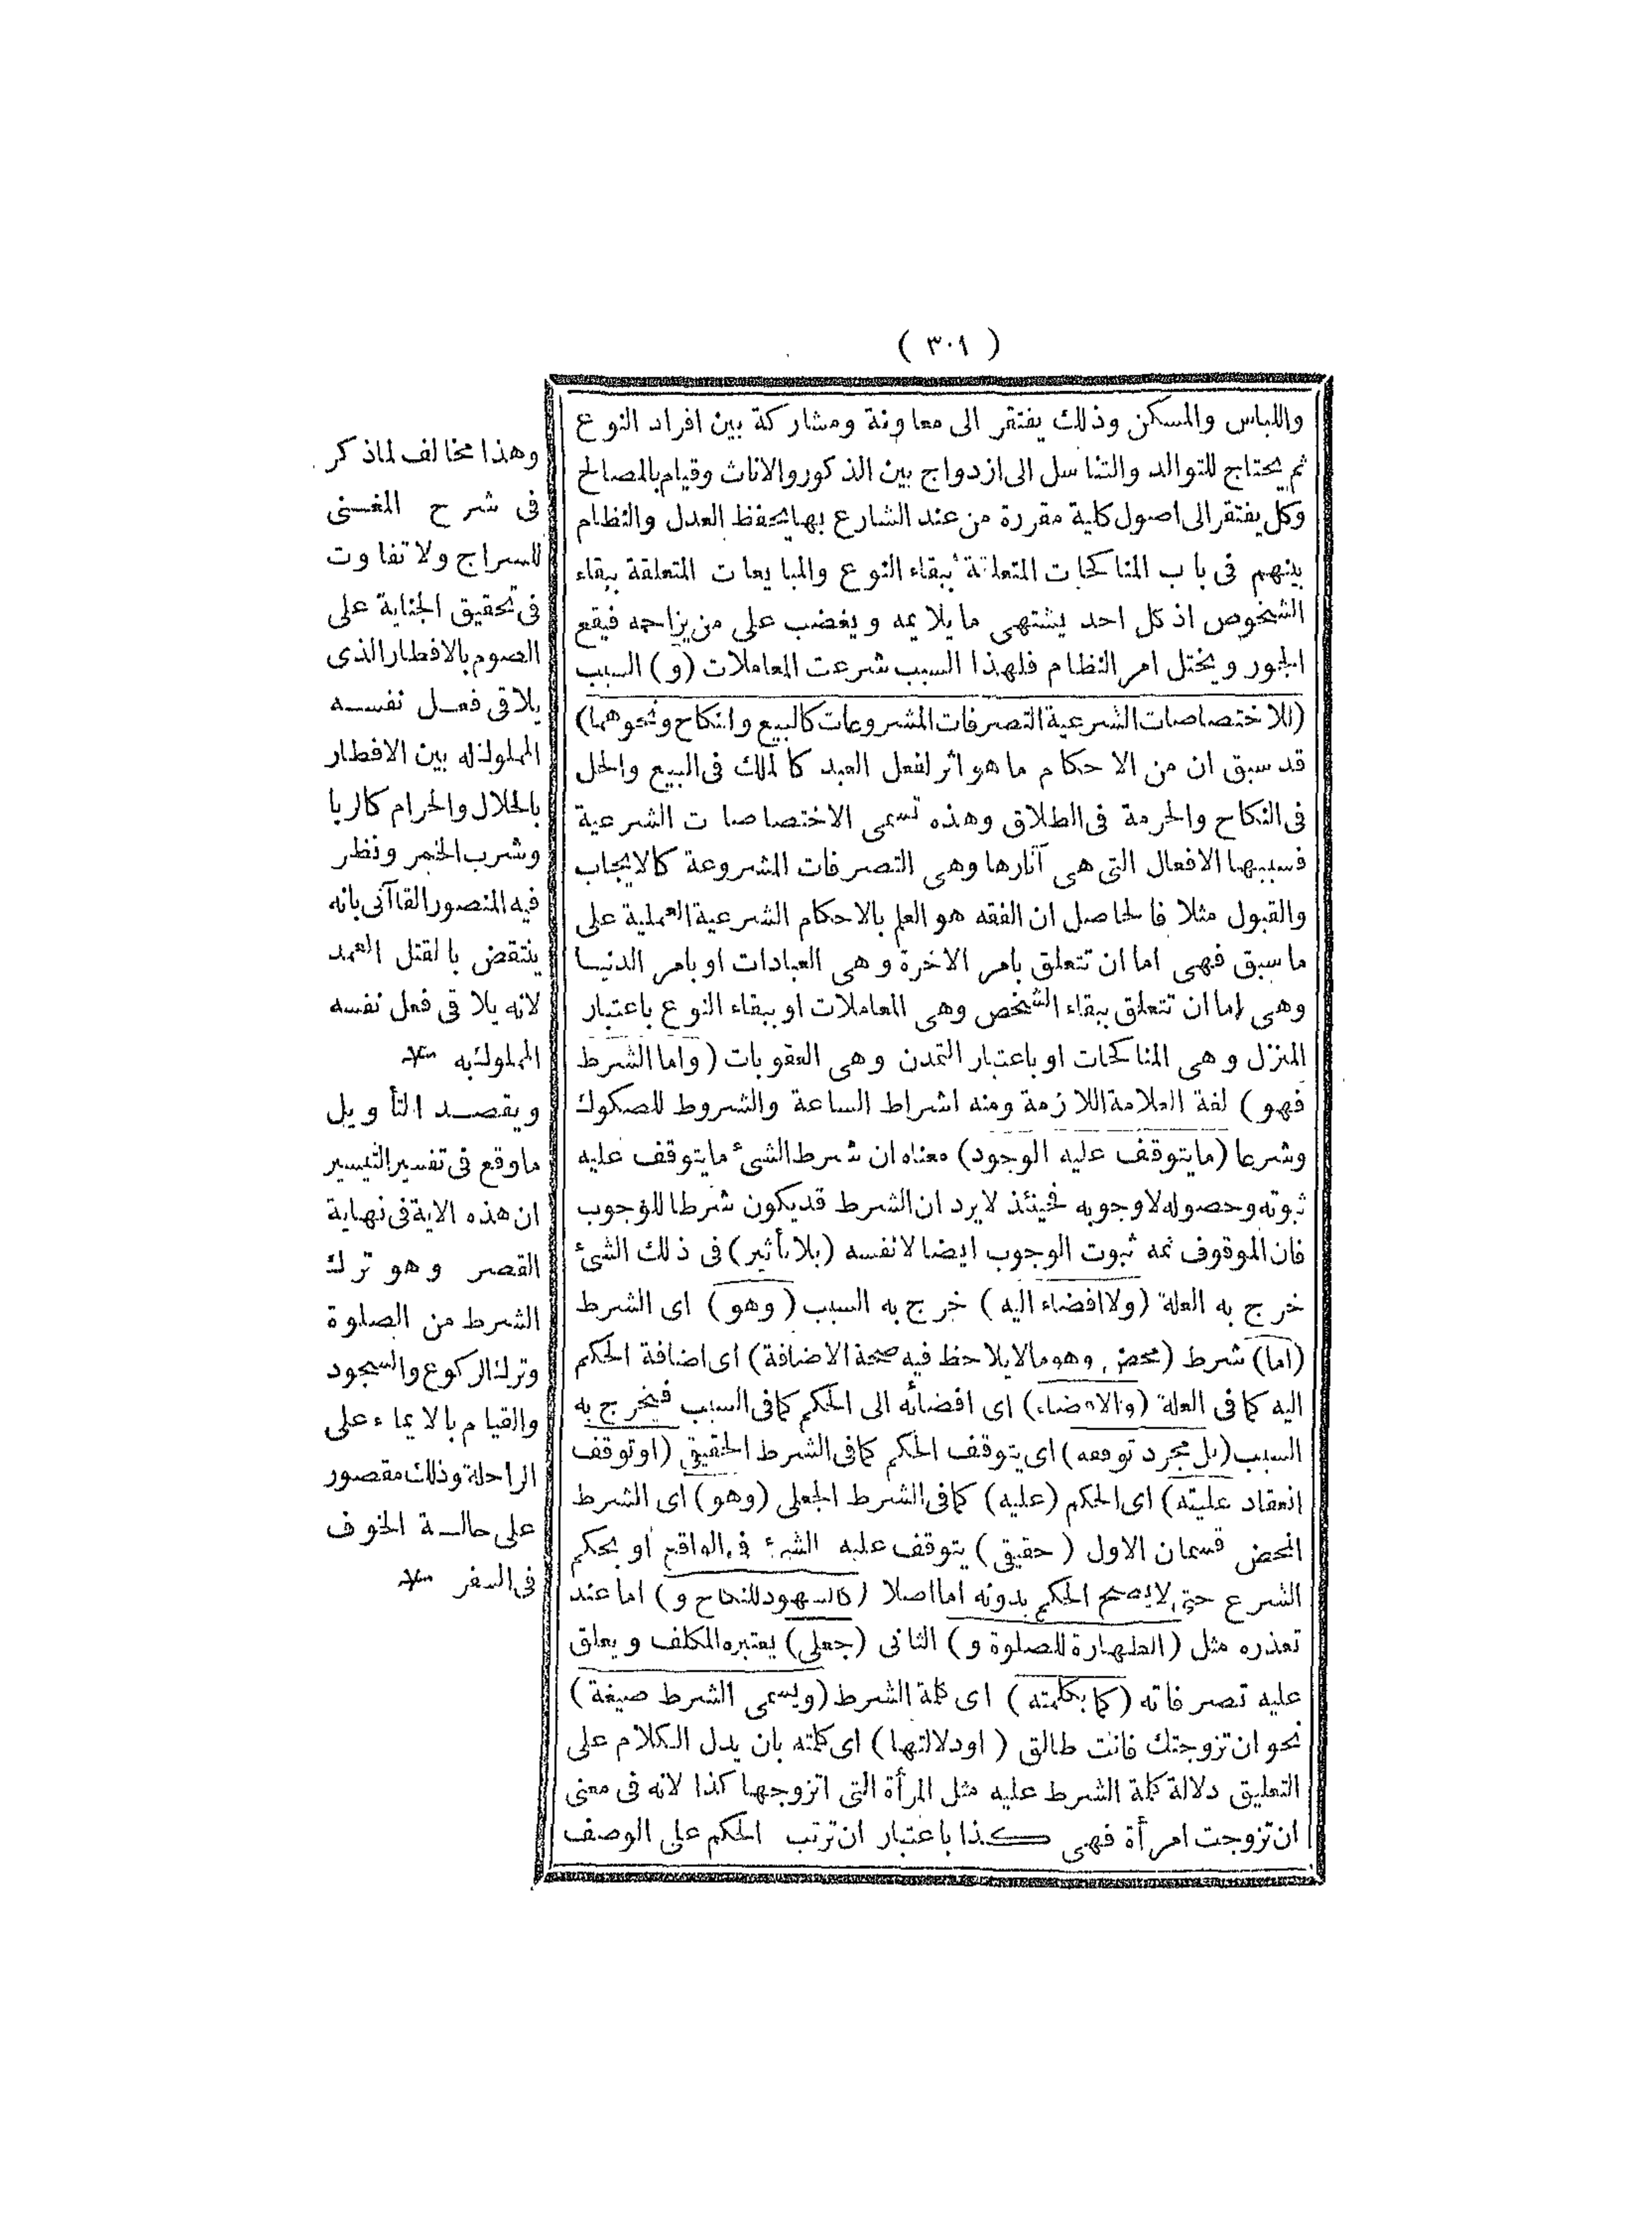 ( ٣٠١ )
واللباس والمسكن وذلك يفتقر الى معاونة ومشاركة بين افراد النوع
ثم يحتاج للتوالد والتناسل الى ازدواج بين الذكور والاناث وقيام بالمصالح
وكل يفتقر الى اصول كلية مقررة من عند الشارع بها يحفظ العدل والنظام
بينهم فى باب المناكحات المتعلقة ببقاء النوع والمبايعات المتعلقة ببقاء
الشخوص اذ كل احد يشتهى ما يلايمه ويغضب على من يزاحمه فيقع
الجور ويختل امر النظام فلهذا السبب شرعت المعاملات (و) السبب
(للاختصاصات الشرعية التصرفات المشروعات كالبيع والنكاح ونحوهما)
قد سبق ان من الاحكام ما هو اثر لفعل العبد كالملك فى البيع والحل
فى النكاح والحرمة فى الطلاق وهذه تسمى الاختصاصات الشرعية
فسببها الافعال التى هى آثارها وهى التصرفات المشروعة كالايجاب
والقبول مثلا فالحاصل ان الفقه هو العلم بالاحكام الشرعية العملية على
ما سبق فهى اما ان تتعلق بامر الاخرة وهى العبادات او بامر الدنيا
وهى اما ان تتعلق ببقاء الشخص وهى المعاملات او ببقاء النوع باعتبار
المنزل وهى المناكحات او باعتبار التمدن وهى العقوبات (واما الشرط
فهو) لغة العلامة اللازمة ومنه اشراط الساعة والشروط للصكوك
وشرعا (ما يتوقف عليه الوجود) معناه ان شرط الشئ ما يتوقف عليه
ثبوته وحصوله لا وجوبه فحينئذ لا يرد ان الشرط قد يكون شرطا للوجوب
فان الموقوف ثمه ثبوت الوجوب ايضا لا نفسه (بلا تأثير) فى ذلك الشئ
خرج به العلة (ولا افضاء اليه) خرج به السبب (وهو) اى الشرط
(اما) شرط (محض وهو ما لا يلاحظ فيه صحة الاضافة) اى اضافة الحكم
اليه كما فى العلة (والافضاء) اى افضائه الى الحكم كما فى السبب فيخرج به
السبب (بل مجرد توقفه) اى يتوقف الحكم كما فى الشرط الحقيقى (او توقف
انعقاد عليته) اى الحكم (عليه) كما فى الشرط الجعلى (وهو) اى الشرط
المحض قسمان الاول (حقيقى) يتوقف عليه الشئ فى الواقع او بحكم
الشرع حتى لا يصح الحكم بدونه اما اصلا (كالشهود للنكاح و) اما عند
تعذره مثل (الطهارة للصلوة و) الثانى (جعلى) يعتبره المكلف ويعلق
عليه تصرفاته (كما بكلمته) اى كلمة الشرط (ويسمى الشرط صيغة)
نحو ان تزوجتك فانت طالق (او دلالتها) اى كلمته بان يدل الكلام على
التعليق دلالة كلمة الشرط عليه مثل المرأة التى اتزوجها كذا لانه فى معنى
ان تزوجت امرأة فهى كذا باعتبار ان ترتب الحكم على الوصف
وهذا مخالف لما ذكر
فى شرح المغنى
للسراج ولا تفاوت
فى تحقيق الجناية على
الصوم بالافطار الذى
يلاقى فعل نفسه
المملوك له بين الافطار
بالحلال والحرام كالربا
وشرب الخمر ونظر
فيه المنصور القاآنى بانه
ينتقض بالقتل العمد
لانه يلاقى فعل نفسه
المملوك به منه
ويقصد التأويل
ما وقع فى تفسير التيسير
ان هذه الاية فى نهاية
القصر وهو ترك
الشرط من الصلوة
وترك الركوع والسجود
والقيام بالايماء على
الراحلة وذلك مقصور
على حالة الخوف
فى السفر منه